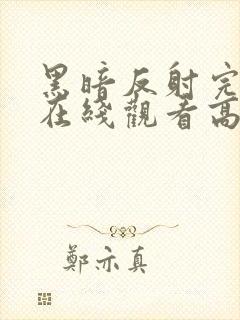 黑暗反射完
在綫觀看高
鄭亦真